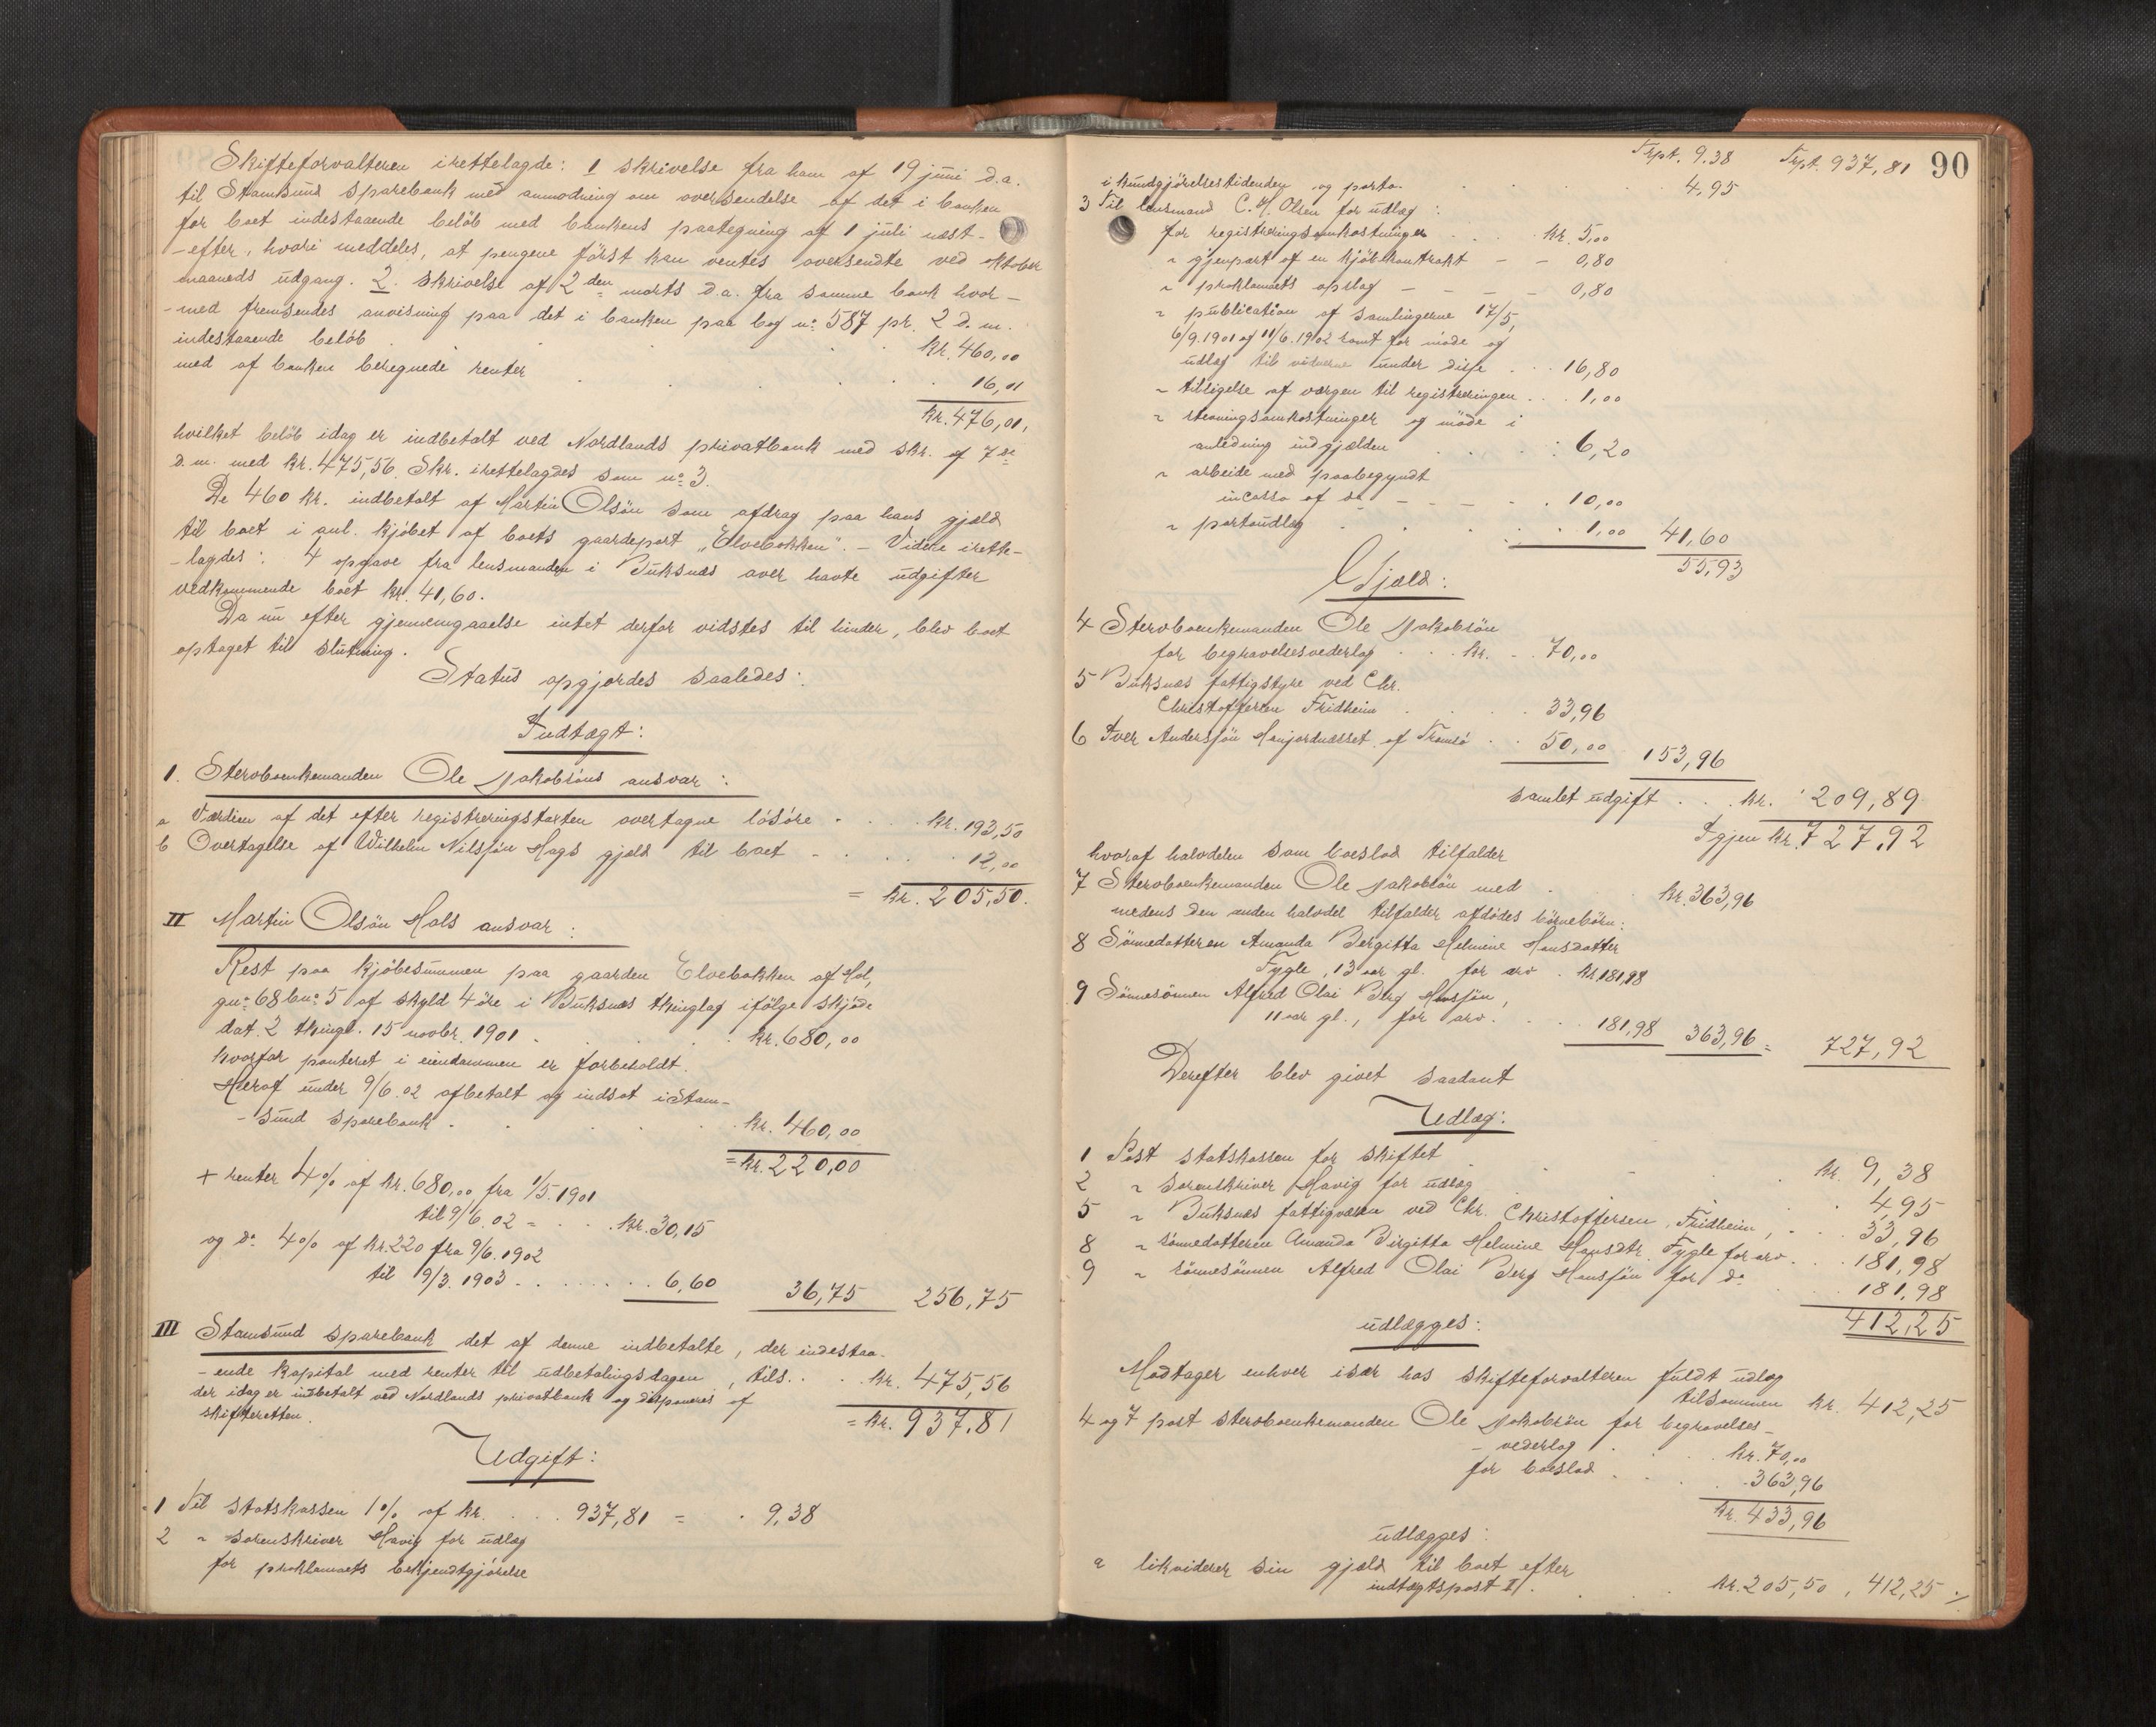 Skifteforvalteren irettelagde: 1 skrivelse fra ham af 19 juni d.a.
til Stamsund sparebank med anmodning om oversendelse af det i banken
for boet indestaaende belöb med bankens paategning af 1 juli næst-
-efter, hvori meddeles, at pengene först kan ventes oversendte ved oktober
maaneds udgang. 2. skrivelse af 2den marts d.a. fra samme bank hvor-
-med fremsendes anvisning paa det i banken paa bog no 587 pr. 2 d.m.
indestaaende belöb . . . kr. 460,00
med af banken beregnede renter . . . . 16,01
kr. 476,01,
hvilket belöb idag er indbetalt ved Nordlands privatbank med skr. af 7de
d.m. med kr. 475,56. Skr. irettelagdes som no 3.
De 460 kr. indbetalt af Martin Olsön som afdrag paa hans gjæld
til boet i anl. kjöbet af boets gaardepart "Elvebakken". - Videre irette-
-lagdes: 4 opgave fra lensmanden i Buksnæs over havte udgifter
vedkommende boet kr. 41,60.
Da nu efter gjennemgaaelse intet derfor vidstes til hinder, blev boet
optaget til slutning.
Status opgjordes saaledes:
Indtægt:
1. Stervboenkemanden Ole Jakobsöns ansvar:
a Værdien af det efter registreringstaxten overtagne lösöre . . . kr. 193,50
b Overtagelse af Wilhelm Nilssön Hags gjæld til boet . . . . 12,00
= kr. 205,50.
II Martin Olsön Hols ansvar:
Rest paa kjöbesummen paa gaarden Elvebakken af Hol,
gno 68 bno 5 af skyld 4 öre i Buksnæs thinglag ifölge skjöde
dat. 2 thingl. 15 novbr. 1901 . . . kr. 680,00
hvorfor panteret i eiendommen er forbeholdt.
Heraf under 9/6.02 afbetalt og indsat i Stam-
-sund sparebank . . . . kr. 460,00
= kr. 220,00
+ renter 4% af kr. 680,00 fra 1/5.1901
til 9/6.02 = . . kr. 30,15
og do 4% af kr. 220 fra 9/6.1902
til 9/3.1903 . . . . . . 6,60 36,75 256,75
III Stamsund sparebank det af denne indbetalte, der indestaa-
-ende kapital med renter til udbetalingsdagen, tils. . . kr. 475,56
der idag er indbetalt ved Nordlands privatbank og disponeres af
skifteretten. = kr. 937.81
Udgift:
1 Til statskassen 1% af kr. . . . 937,81 = . 9,38
2 " sorenskriver Havig for udlæg
for proklamaets bekjendtgjörelse
Trpt. 9.38 Trpt. 937,81 90
i kundgjörelsestidenden og porto . . . . 4,95
3 Til lensmand C. H. Olsen for udlæg:
for registreringsomkostninger . . . kr. 5,00
" gjenpart af en kjöbekontrakt - - 0,80
" proklamaets opslag - - - - 0,80
" publication af samlingerne 17/5,
6/9.1901 og 11/6.1902 samt for möde og
udlæg til vidnerne under disse . . . 16,80
" tilsigelse af værgen til registreringen . . . 1,00
" stevningsomkostninger og möde i
anledning indgjælden . . . . 6,20
" arbeide med paabegyndt
incasso af do - - - - . 10,00
" portoudlæg . . . . . 1,00 41,60
55,93
Gjæld:
4 Stervboenkemanden Ole Jakobsön
for begravelsesvederlag . . . kr. . . 70,00
5 Buksnæs fattigstyre ved Chr.
Christoffersen Fridheim . . . . 33,96
6 Iver Anderssön Hanjordnæsset af Tromsö . . 50,00 153,96
samlet udgift . . . kr. 209,89
Igjen kr. 727,92
hvoraf halvdelen som boeslod tilfalder
7 Stervboenkemanden Ole Jakobsön med . . kr. 363,96
medens den anden halvdel tilfalder afdödes börnebörn:
8 Sönnedatteren Amanda Bergitta Helmine Hansdatter
Fygle, 13 aar gl. for arv . kr. 181,98
9 Sönnesönnen Alfred Olai Berg Hanssön,
11 aar gl., for arv. . . . 181,98 363,96 = 727,92
Derefter blev givet saadant
Udlæg:
1 Post statskassen for skiftet . . . . kr. 9,38
2 " sorenskriver Havig for udlæg . . . 4,95
5 " Buksnæs fattigvæsen ved Chr. Christoffersen, Fridheim, . . . 33,96
8 " sönnedatteren Amanda Birgitta Helmine Hansdtr. Fygle for arv . . . 181,98
9 " sönnesönnen Alfred Olai Berg Hanssön for do . . 181,98
412,25
udlægges:
Modtager enhver især hos skifteforvalteren fuldt udlæg
tilsammen kr. 412,25
4 og 7 post stervboenkemanden Ole Jakobsön for begravelses-
-vederlag . . . kr. 70,00
for boeslod . . . . 363,96
kr. 433,96
udlægges:
a likviderer sin gjæld til boet efter
indtægtspost I . . . kr. 205,50 , 412,25 ./.